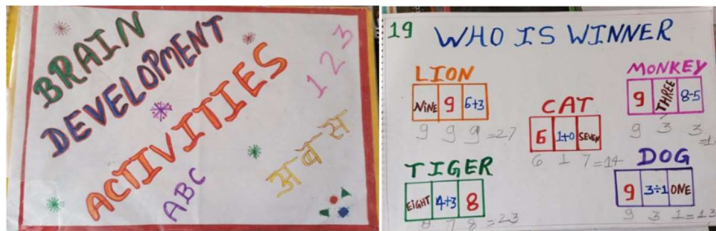 BRAIN
DEVELOPMENT
ACTIVITIES
123
ABC
अ ब स
19 WHO IS WINNER
LION
NINE 9 6+3
9 9 9 =27
MONKEY
9 THREE 8-5
9 3 3
CAT
6 1+0 SEVEN
6 1 7=14
TIGER
EIGHT 4+3 8
8 7 8 =23
DOG
9 3÷1 ONE
9 3 1=13